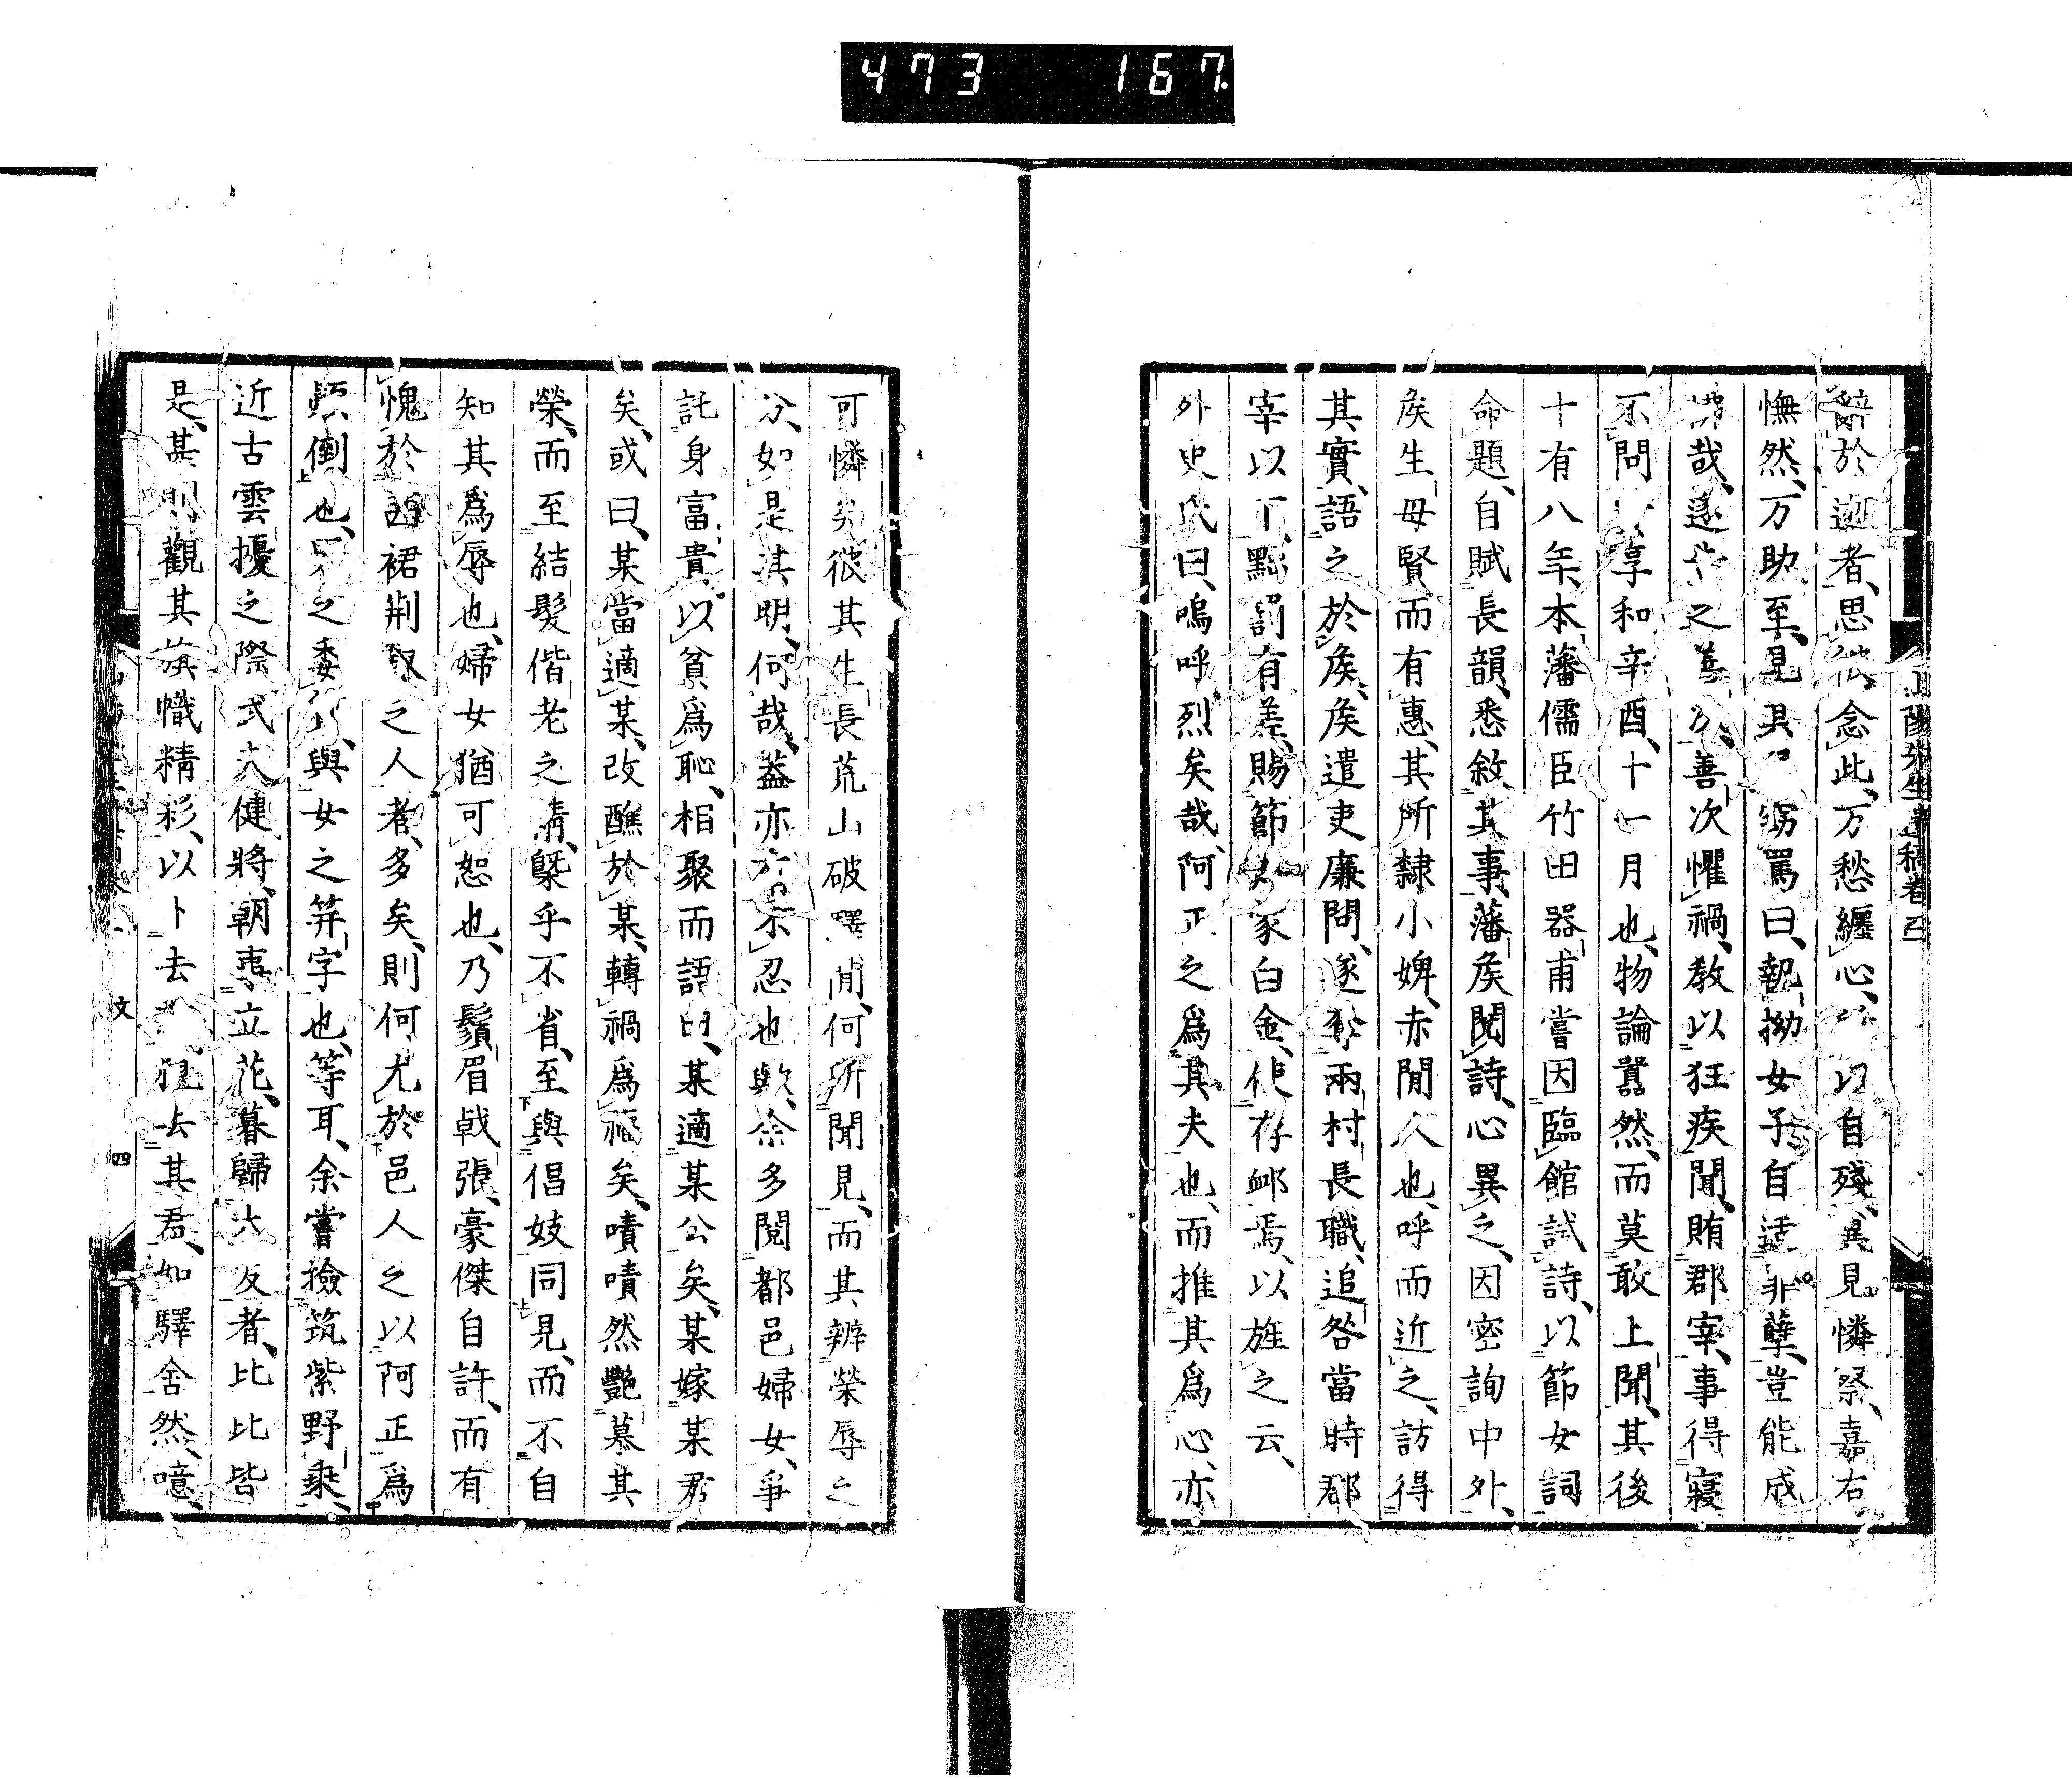 473 167
山陽先生遺稿卷三
辭於逝者、思彼念此、万愁纏心、以自殘、冀見憐察、嘉右
憮然、万助至、見具罵曰、執拗女子、自適非孽、豈能成
哉、遂之善次懼禍、教以狂疾聞、賄郡宰、事得寢
不問、享和辛酉、十一月也、物論囂然、而莫敢上聞、其後
十有八年、本藩儒臣竹田器甫嘗因臨館試詩、以節女詞
命題、自賦長韻、悉敘其事、藩矦閱詩、心異之、因密詢中外、
矦生母賢而有惠、其所隸小婢、赤閒人也、呼而近之、訪得
其實、語之於矦、矦遣吏廉問、遂奪兩村長職、追咎當時郡
宰以下、黜罰有差、賜節女家白金、使存卹焉、以旌之云、
外史氏曰、嗚呼烈矣哉、阿正之爲其夫也、而推其爲心、亦
可憐矣、彼其生長荒山破驛閒、何所聞見、而其辨榮辱之
分、如是其明、何哉、蓋亦不忍也歟、余多閱都邑婦女、爭
託身富貴、以貧爲恥、相聚而語曰、某適某公矣、某嫁某君
矣、或曰、某當適某、改醮於某、轉禍爲福矣、嘖嘖然艷慕其
榮、而至結髮偕老之情、槩乎不省、至與倡妓同見、而不自
知其爲辱也、婦女猶可恕也、乃鬚眉戟張、豪傑自許、而有
愧於裙荆釵之人者、多矣、則何尤於邑人之以阿正爲
顚倒也、之委與女之笄字也、等耳、余嘗撿筑紫野乘、
近古雲擾之際、武夫健將、朝事立花、暮歸大友者、比比皆
是、其觀其旗幟精彩、以卜去就去其君、如驛舍然、噫、
文 四